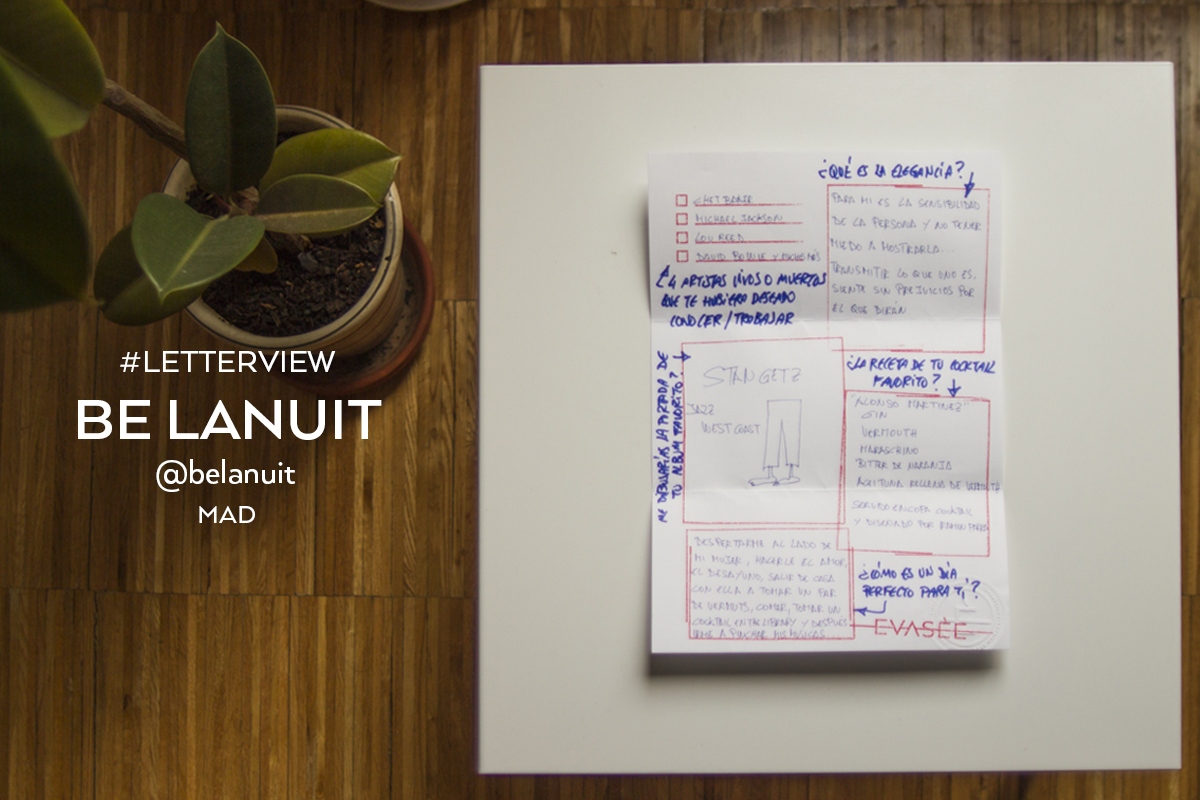 #LETTERVIEW
BE LANUIT
@belanuit
MAD
CHET BAKER
MICHAEL JACKSON
LOU REED
DAVID BOWIE Y MUCHOS MÁS
4 ARTISTAS VIVOS O MUERTOS
QUE TE HUBIERA DESEADO
CONOCER / TRABAJAR
¿QUÉ ES LA ELEGANCIA?
PARA MI ES LA SENSIBILIDAD
DE LA PERSONA Y NO TENER
MIEDO A MOSTRARLA...
TRANSMITIR LO QUE UNO ES,
SIENTE SIN PREJUICIOS POR
EL QUE DIRÁN
ME DIBUJARÍAS LA PORTADA DE
TU ALBUM FAVORITO?
STAN GETZ
JAZZ
WEST COAST
¿LA RECETA DE TU COCKTAIL
FAVORITO?
"ALONSO MARTINEZ"
GIN
VERMOUTH
MARASCHINO
BITTER DE NARANJA
ACEITUNA RELLENA DE
SERVIDO EN COPA COCKTAIL
Y DISEÑADO POR RAMON
DESPERTARME AL LADO DE
MI MUJER, HACERLE EL AMOR,
EL DESAYUNO, SALIR DE CASA
CON ELLA A TOMAR UN PAR
DE VERMUTS, COMER, TOMAR UN
COCKTAIL EN THE LIBRARY Y DESPUES
IRME A PINCHAR MIS MUSICAS
¿CÓMO ES UN DÍA
PERFECTO PARA TÍ?
EVASÈE